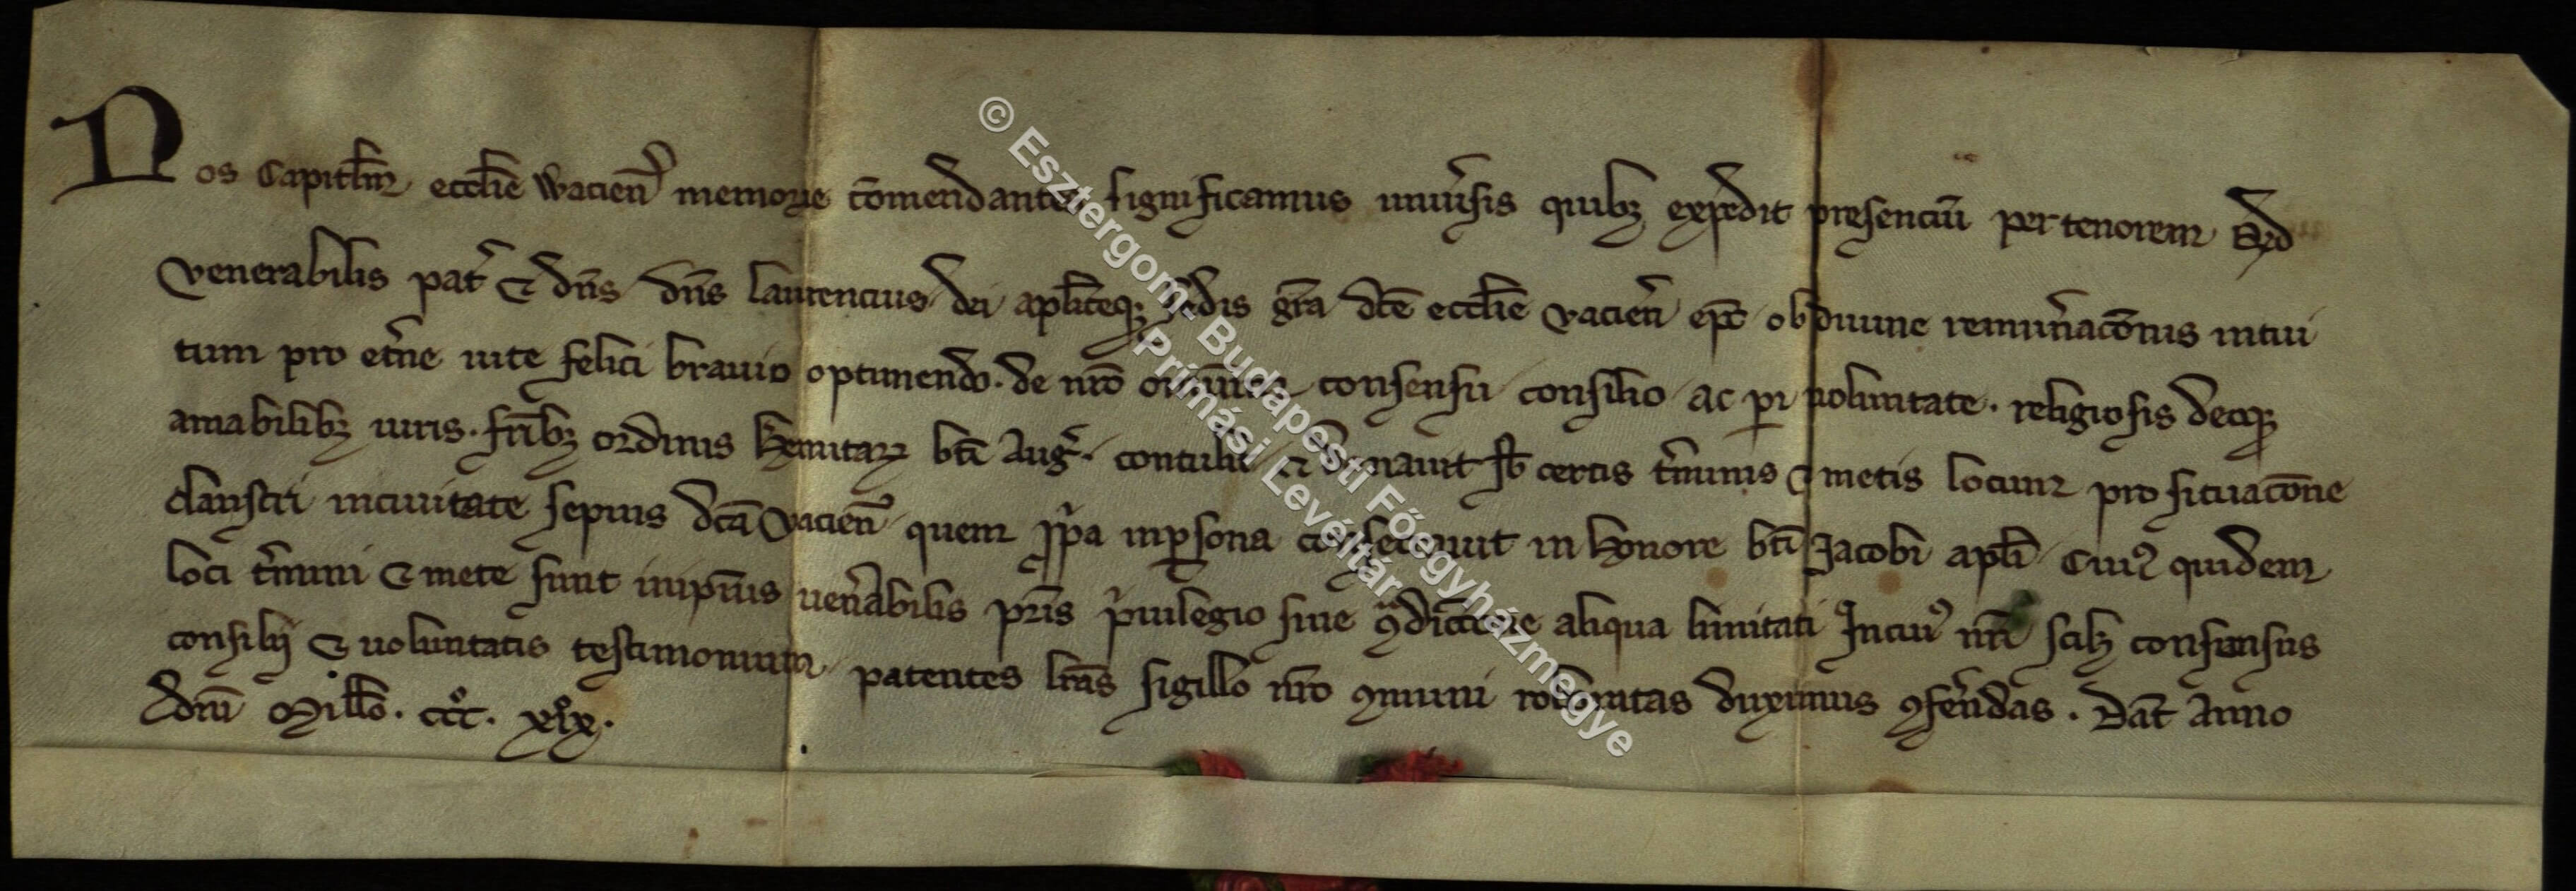 Nos Capitl̄m eccl̄ie Wacien̄ memorie cōmendantes significamus univ̄sis quibꝫ expedit presenciū per tenorem Qd̄
venerabilis pat̓ ⁊ dn̄s dn̄s laurencius dei apl̄iceqꝫ sedis gr̄a dc̄e eccl̄ie vacien̄ ep̄c ob diuine remun̄acōnis intui
tum pro et̓ne uite felici brauio optinendo. de nr̄o omniū consensu consilio ac pari uoluntate. religiosis deoqꝫ
amabilibꝫ uiris. fr̄ibꝫ ordinis heremitaꝝ bt̄i Aug̓. contulit ⁊ donauit sb̄ certis t̓minis ⁊ metis locum pro situacōne
claustri in ciuitate sepius dc̄a vacien̄ quem ip̄a in ꝑsona consecrauit in honore bt̄i Jacobi apl̄i Cuiꝰ quidem
loci t̓mini ⁊ mete sunt in ip̄ius uen̓abilis pr̄is p̓uilegio sine ꝯdiccōne aliqua limitati In cuiꝰ nr̄i scilꝫ consensus
consilij ⁊ uoluntatis testimonium patentes lr̄as sigillo nr̄o ꝯmuni roboratas duximus ꝯfer̄endas. Dat̄ Anno
dn̄i Millo̅. ccc°. x°ix.
© Esztergom- Budapesti Főegyházmegye
Prímási Levéltár